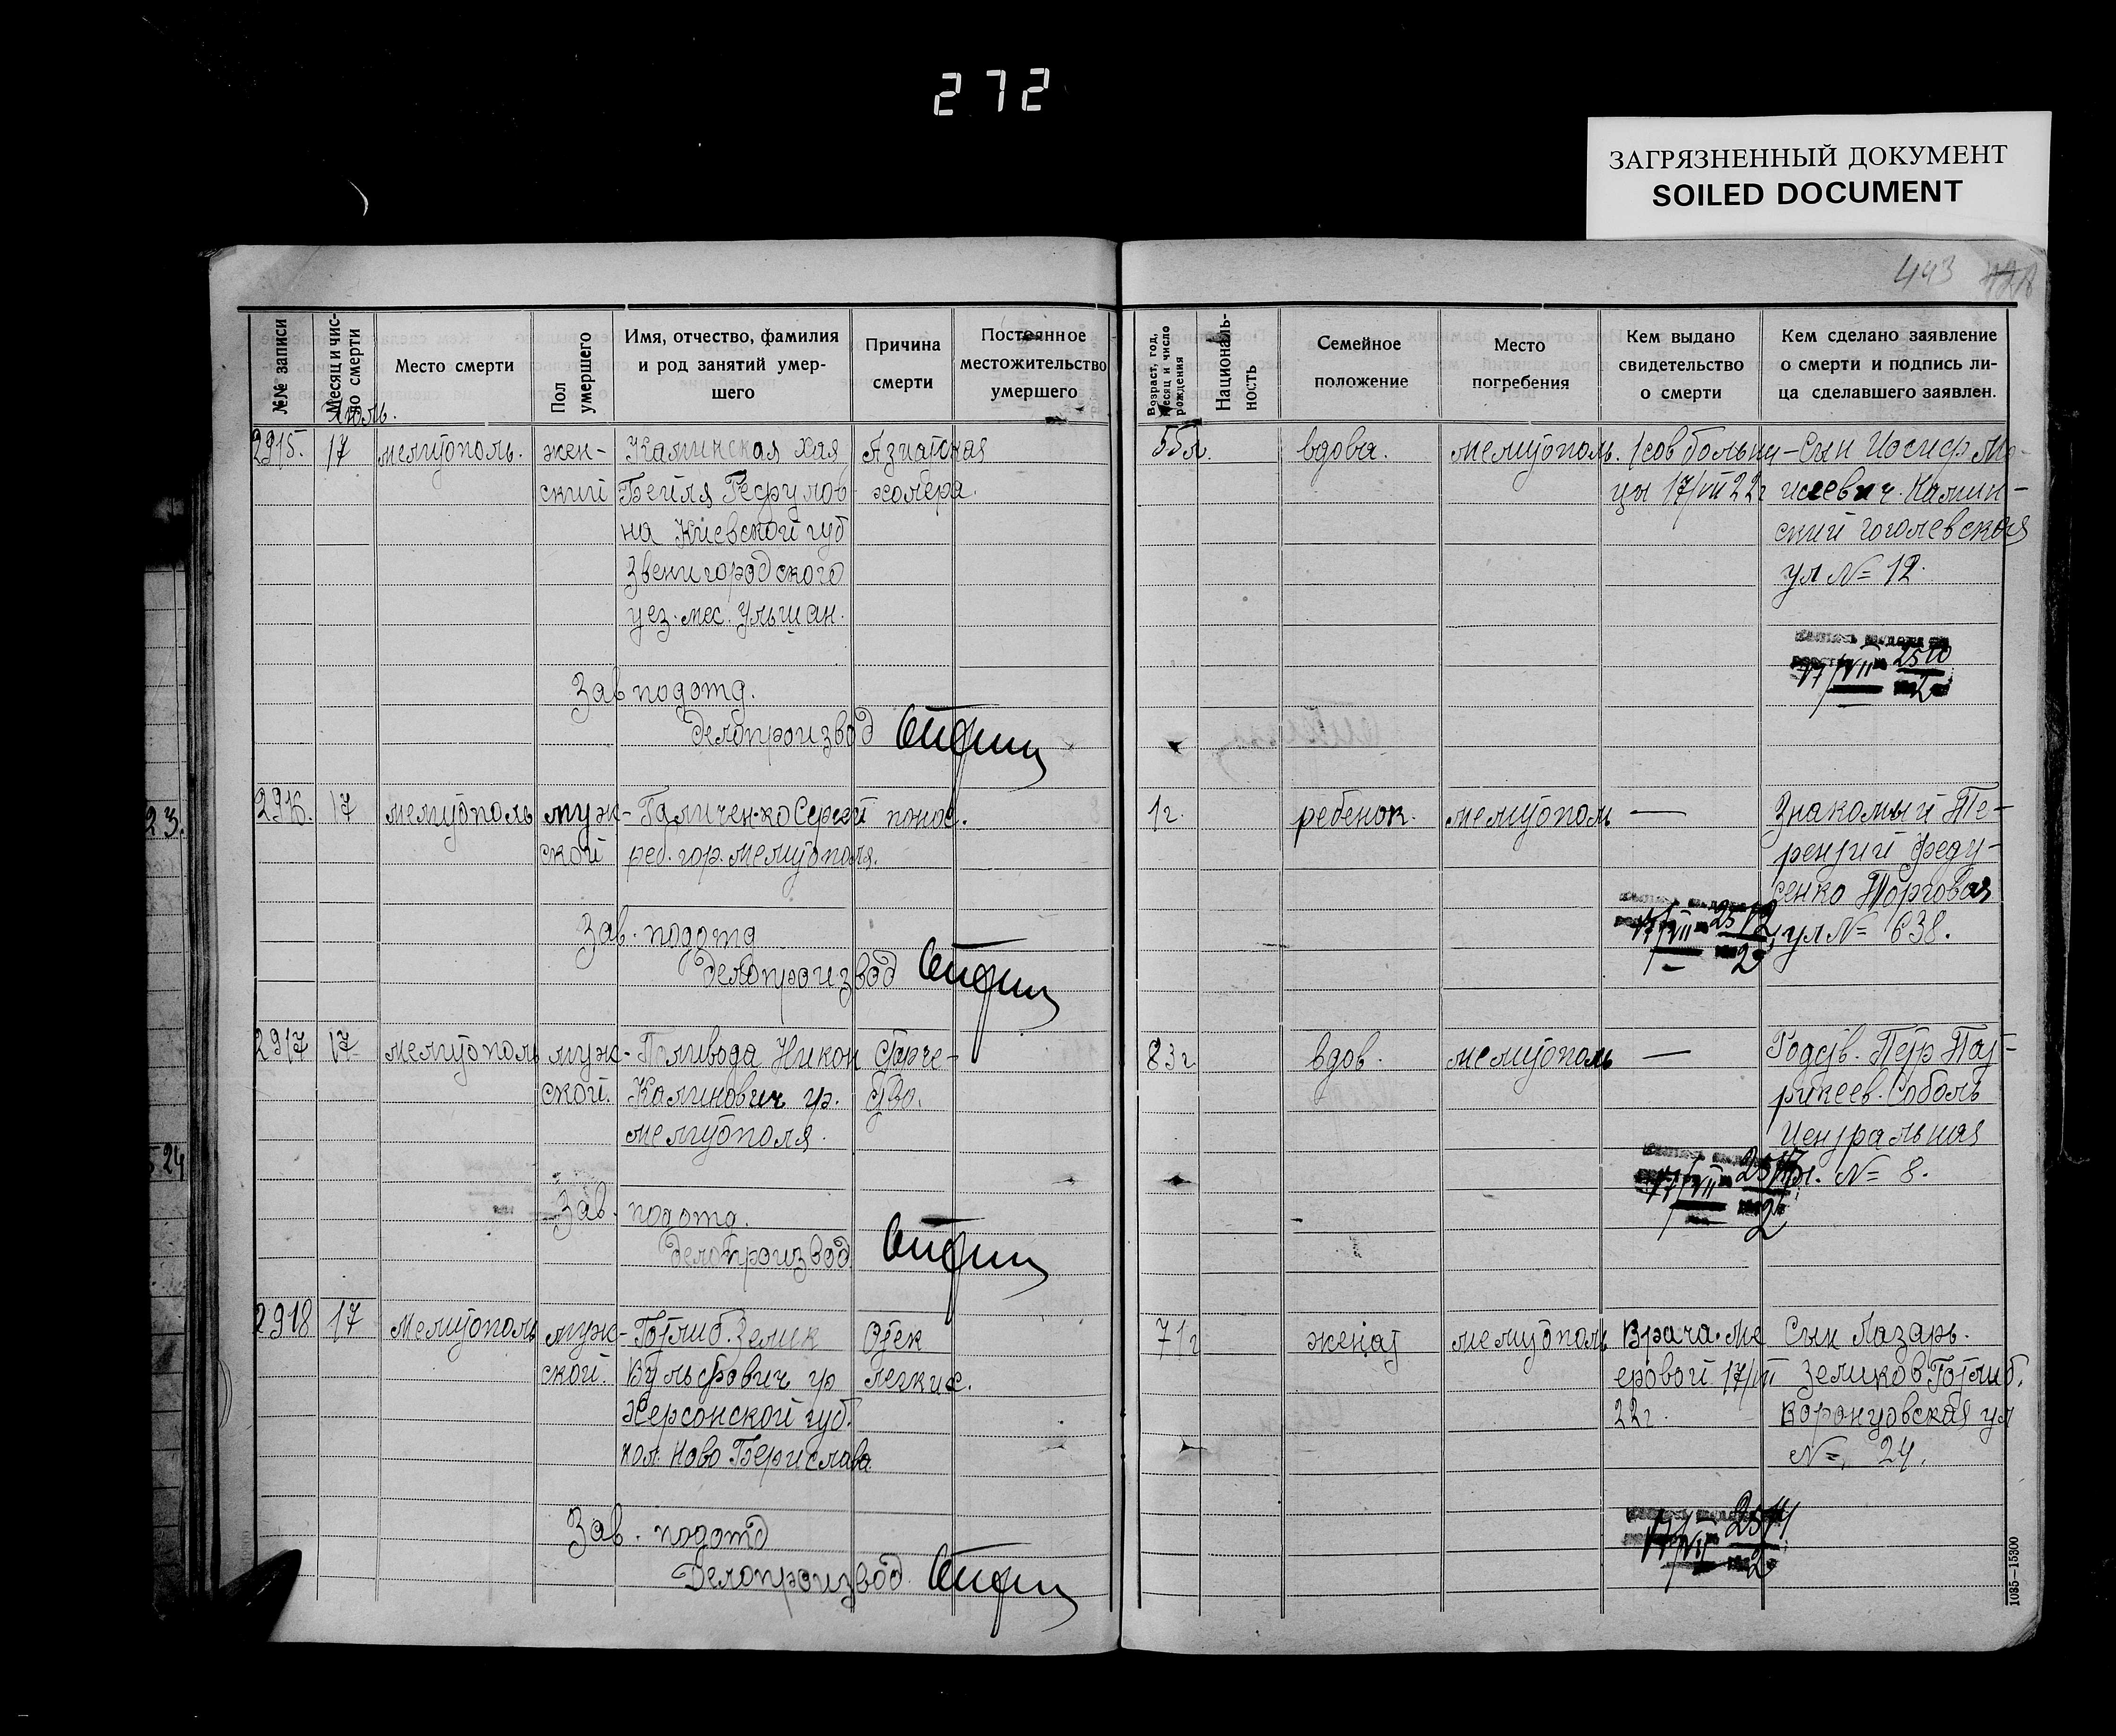 272
ЗАГРЯЗНЕННЫЙ ДОКУМЕНТ
SOILED DOCUMENT
493
№№ записи
Месяц и чис-
ло смерти
Место смерти
Пол
умершего
Имя, отчество, фамилия
и род занятий умер-
шего
Причина
смерти
Постоянное
местожительство
умершего
Возраст, год,
месяц и число
рождения
Националь-
ность
Семейное
положение
Место
погребения
Кем выдано
свидетельство
о смерти
Кем сделано заявление
о смерти и подпись ли-
ца сделавшего заявлен.
Июль.
2915.
17
мелитополь.
жен-
ский
Каминская Хая
Бейля
на Киевской губ
Звенигородского
уез. мес. Ульшан.
Азиатская
холера.
55 л.
вдова.
мелитополь.
1 сов больни-
цы 17/VII 22г
Сын Иосиф Мо-
исеевич Камин-
ский гоголевская
ул № 12.
17/VII 2510
2
Зав подотд.
делопроизвод
2916.
17
мелитополь
муж-
ской
Галиченко Сергей
реб. гор. мелитополя.
понос.
1 г.
ребенок.
мелитополь
—
Знакомый Те-
рентий Феду-
сенко Торговая
ул № 638.
17/VII 2512
2
Зав. подотд
делопроизвод
2917
17
мелитополь
муж-
ской.
Поливода Никон
Калинович гр.
мелитополя.
Старче-
ство.
83 г
вдов.
мелитополь
—
Родств. Петр Пат-
рикеев. Соболь
Центральная
ул. № 8.
17/VII
2
Зав. подотд.
делопроизвод
2918
17
Мелитополь
муж-
ской.
Готлиб Зелик
Вульфович гр
Херсонской губ.
кол. Ново Берислава
Отек
легких.
71 г
женат
мелитополь
Врача Ме
еровой 17/VII
22 г.
Сын Лазарь.
Зеликов Готлиб.
Воронцовская ул
№ 24.
17/VII 2514
2
Зав. подотд
Делопроизвод.
23.
524
1035—15300